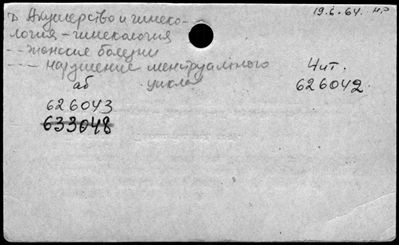 D Акушерство и гинеко-
логия - гинекология
-- женские болезни
--- нарушение менструального
цикла
19.6.64. н.р
аб
626043
633048
Чит.
626042